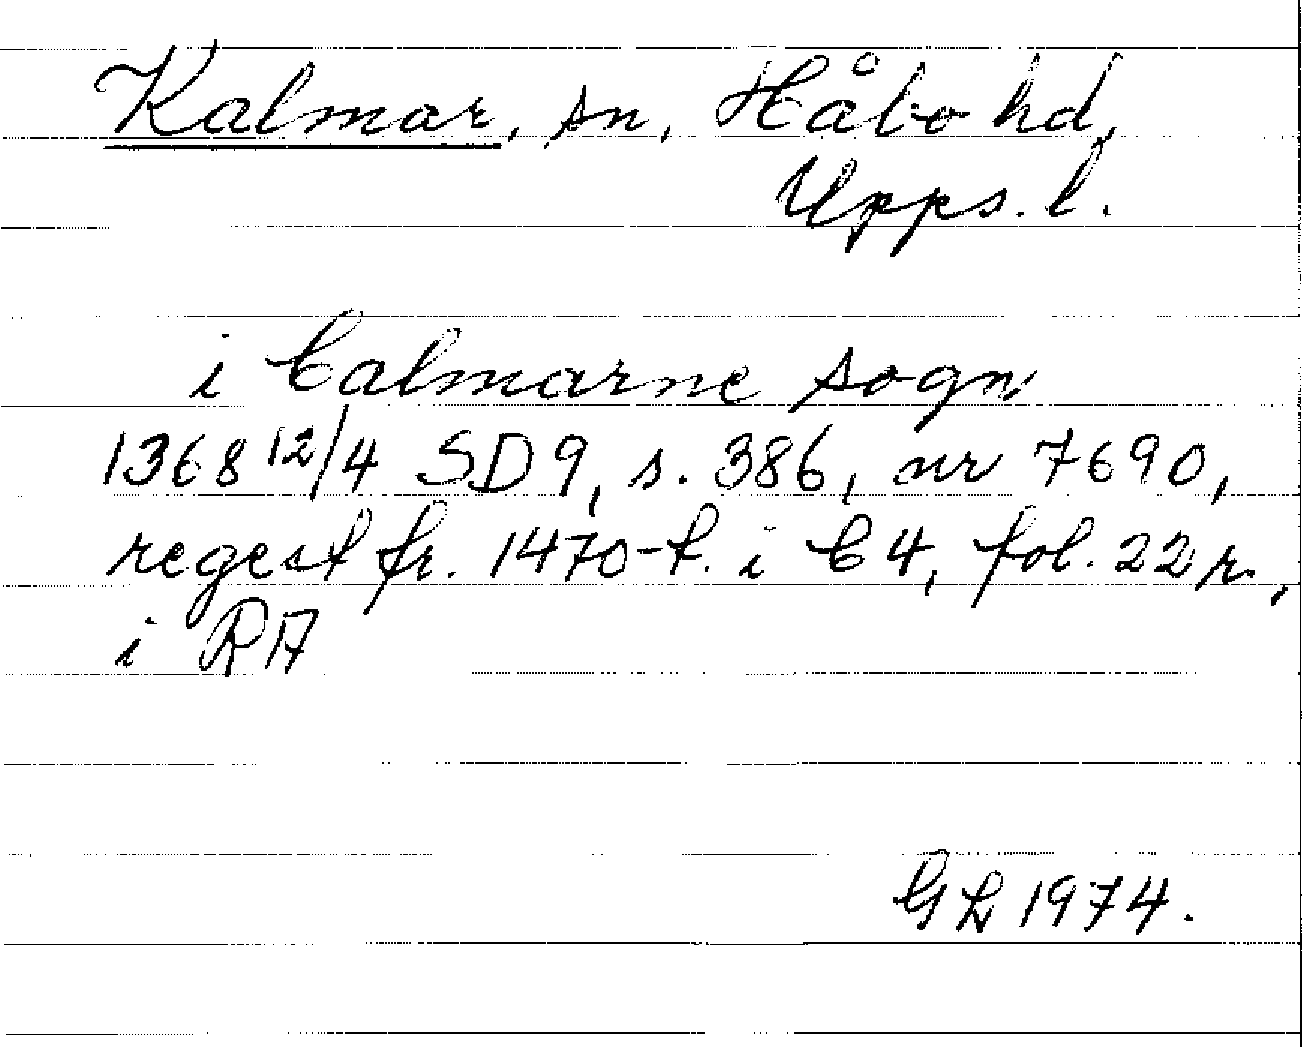 Kalmar, sn, Håbo hd,
Upps. l.
i Calmarne sogn
1368 12/4 SD 9, s. 386, nr 7690,
regest fr. 1470-t. i C 4, fol. 22 r.,
i RA
GL 1974.